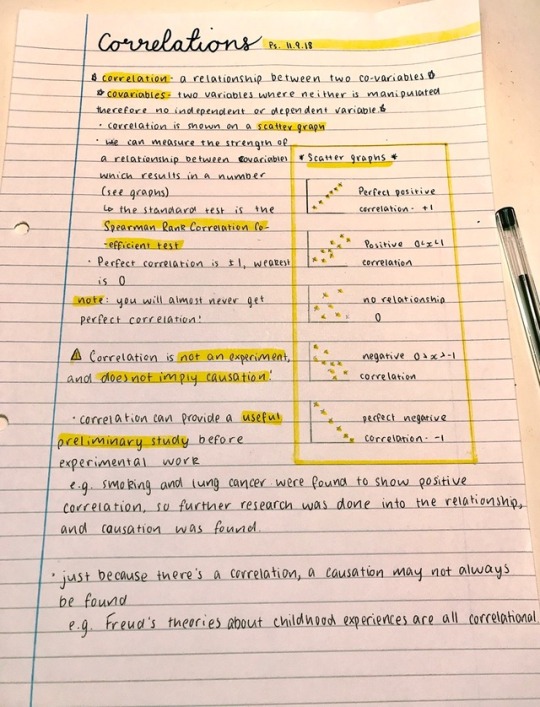 Correlations Ps. 11.9.18
correlation - a relationship between two co-variables
covariables - two variables where neither is manipulated
therefore no independent or dependent variable
· correlation is shown on a scatter graph
· we can measure the strength of
a relationship between covariables
which results in a number
(see graphs)
↳ the standard test is the
Spearman Rank Correlation Co-
efficient test
· Perfect correlation is ±1, weakest
is 0
note: you will almost never get
perfect correlation!
⚠ Correlation is not an experiment,
and does not imply causation!
· correlation can provide a useful
preliminary study before
experimental work
* Scatter graphs *
Perfect positive
correlation - +1
Positive 0<x<1
correlation
no relationship
0
negative 0>x>-1
correlation
perfect negative
correlation - -1
e.g. smoking and lung cancer were found to show positive
correlation, so further research was done into the relationship,
and causation was found.
· just because there's a correlation, a causation may not always
be found
e.g. Freud's theories about childhood experiences are all correlational